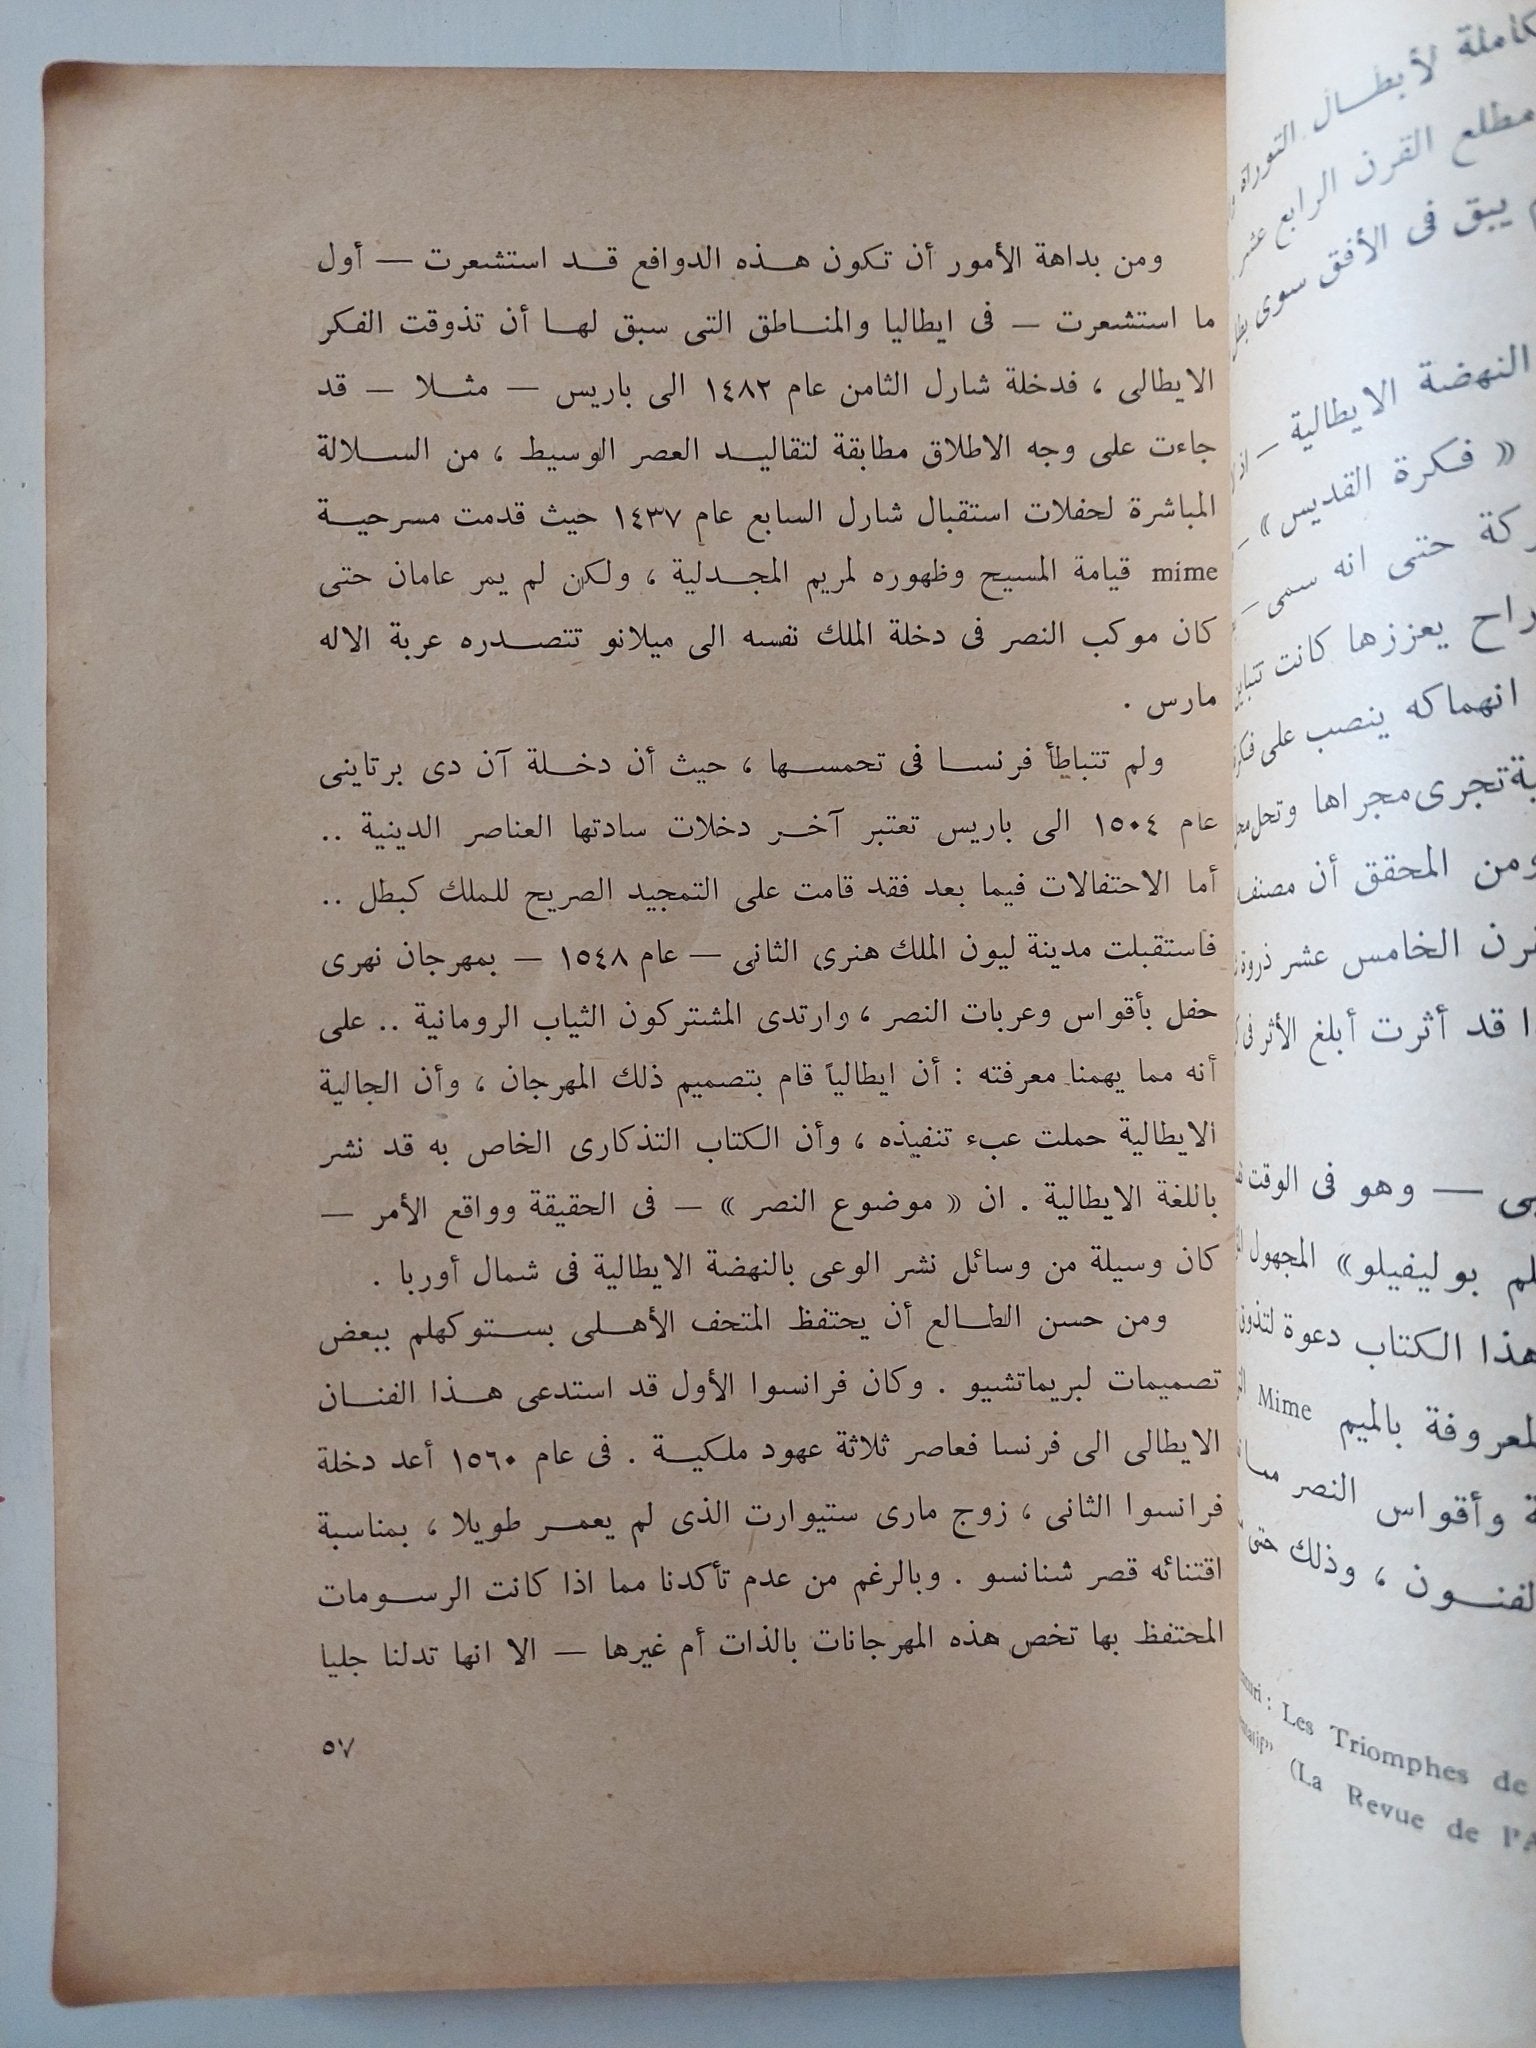 ومن بداهة الأمور أن تكون هذه الدوافع قد استشعرت — أول
ما استشعرت — فى ايطاليا والمناطق التى سبق لها أن تذوقت الفكر
الايطالى ، فدخلة شارل الثامن عام ١٤٨٢ الى باريس — مثلا — قد
جاءت على وجه الاطلاق مطابقة لتقاليد العصر الوسيط ، من السلالة
المباشرة لحفلات استقبال شارل السابع عام ١٤٣٧ حيث قدمت مسرحية
mime قيامة المسيح وظهوره لمريم المجدلية ، ولكن لم يمر عامان حتى
كان موكب النصر فى دخلة الملك نفسه الى ميلانو تتصدره عربة الاله
مارس .
ولم تتباطأ فرنسا فى تحمسها ، حيث أن دخلة آن دى برتاينى
عام ١٥٠٤ الى باريس تعتبر آخر دخلات سادتها العناصر الدينية ..
أما الاحتفالات فيما بعد فقد قامت على التمجيد الصريح للملك كبطل ..
فاستقبلت مدينة ليون الملك هنرى الثانى — عام ١٥٤٨ — بمهرجان نهرى
حفل بأقواس وعربات النصر ، وارتدى المشتركون الثياب الرومانية .. على
أنه مما يهمنا معرفته : أن ايطالياً قام بتصميم ذلك المهرجان ، وأن الجالية
الايطالية حملت عبء تنفيذه ، وأن الكتاب التذكارى الخاص به قد نشر
باللغة الايطالية . ان « موضوع النصر » — فى الحقيقة وواقع الأمر —
كان وسيلة من وسائل نشر الوعى بالنهضة الايطالية فى شمال أوربا .
ومن حسن الطالع أن يحتفظ المتحف الأهلى بستوكهلم ببعض
تصميمات لبريماتشيو . وكان فرانسوا الأول قد استدعى هذا الفنان
الايطالى الى فرنسا فعاصر ثلاثة عهود ملكية . فى عام ١٥٦٠ أعد دخلة
فرانسوا الثانى ، زوج مارى ستيوارت الذى لم يعمر طويلا ، بمناسبة
اقتنائه قصر شنانسو . وبالرغم من عدم تأكدنا مما اذا كانت الرسومات
المحتفظ بها تخص هذه المهرجانات بالذات أم غيرها — الا انها تدلنا جليا
٥٧
لأبطال التوراة
مطلع القرن الرابع عشر
يبق فى الأفق سوى
النهضة الايطالية —
« فكرة القديس » —
حتى انه سمى —
يعززها كانت
انهماكه ينصب على
تجرى مجراها وتحل
ومن المحقق أن مصنف
الخامس عشر ذروة
قد أثرت أبلغ الأثر فى
— وهو فى الوقت
بوليفيلو » المجهول
هذا الكتاب دعوة
بالميم Mime
وأقواس النصر
، وذلك حتى
: Les Triomphes de
(La Revue de